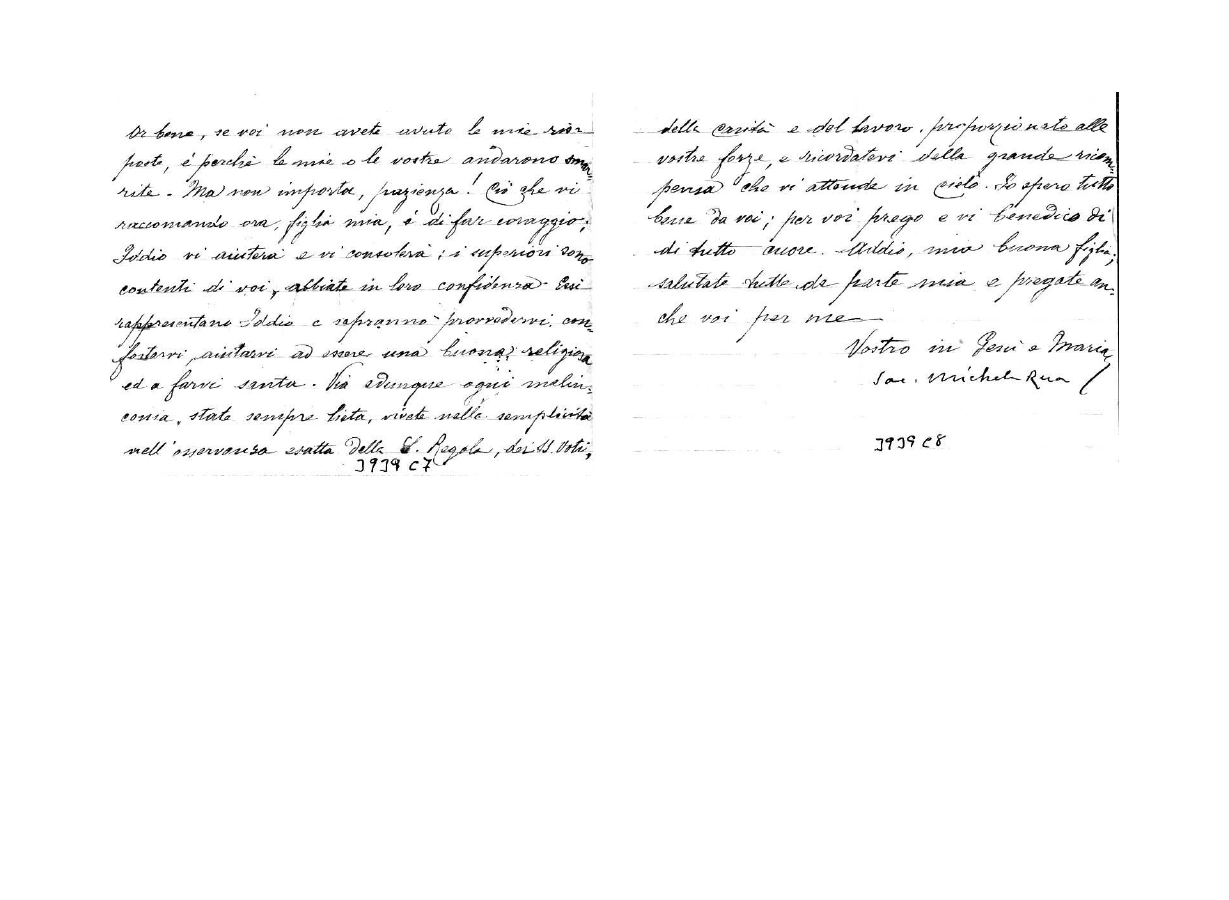 Or bene, se voi non avete avuto le mie ris-
poste, è perchè le mie o le vostre andarono smar-
rite. Ma non importa, pazienza! Ciò che vi
raccomando ora, figlia mia, è di far coraggio;
Iddio vi aiuterà e vi consolerà; i superiori sono
contenti di voi, abbiate in loro confidenza. Essi
rappresentano Iddio e sapranno provvedervi, con-
fortarvi, aiutarvi ad essere una buona religiosa
ed a farvi santa. Via adunque ogni malin-
conia, state sempre lieta, vivete nella semplicità
nell'osservanza esatta della S. Regola, dei SS. Voti,
J939 C7
della carità e del lavoro, proporzionato alle
vostre forze, e ricordatevi della grande ricom-
pensa che vi attende in cielo. Io spero tutto
bene da voi; per voi prego e vi benedico di
di tutto cuore. Addio, mia buona figlia;
salutate tutte da parte mia e pregate an-
che voi per me
Vostro in Gesù e Maria
Sac. Michele Rua
J939 C8